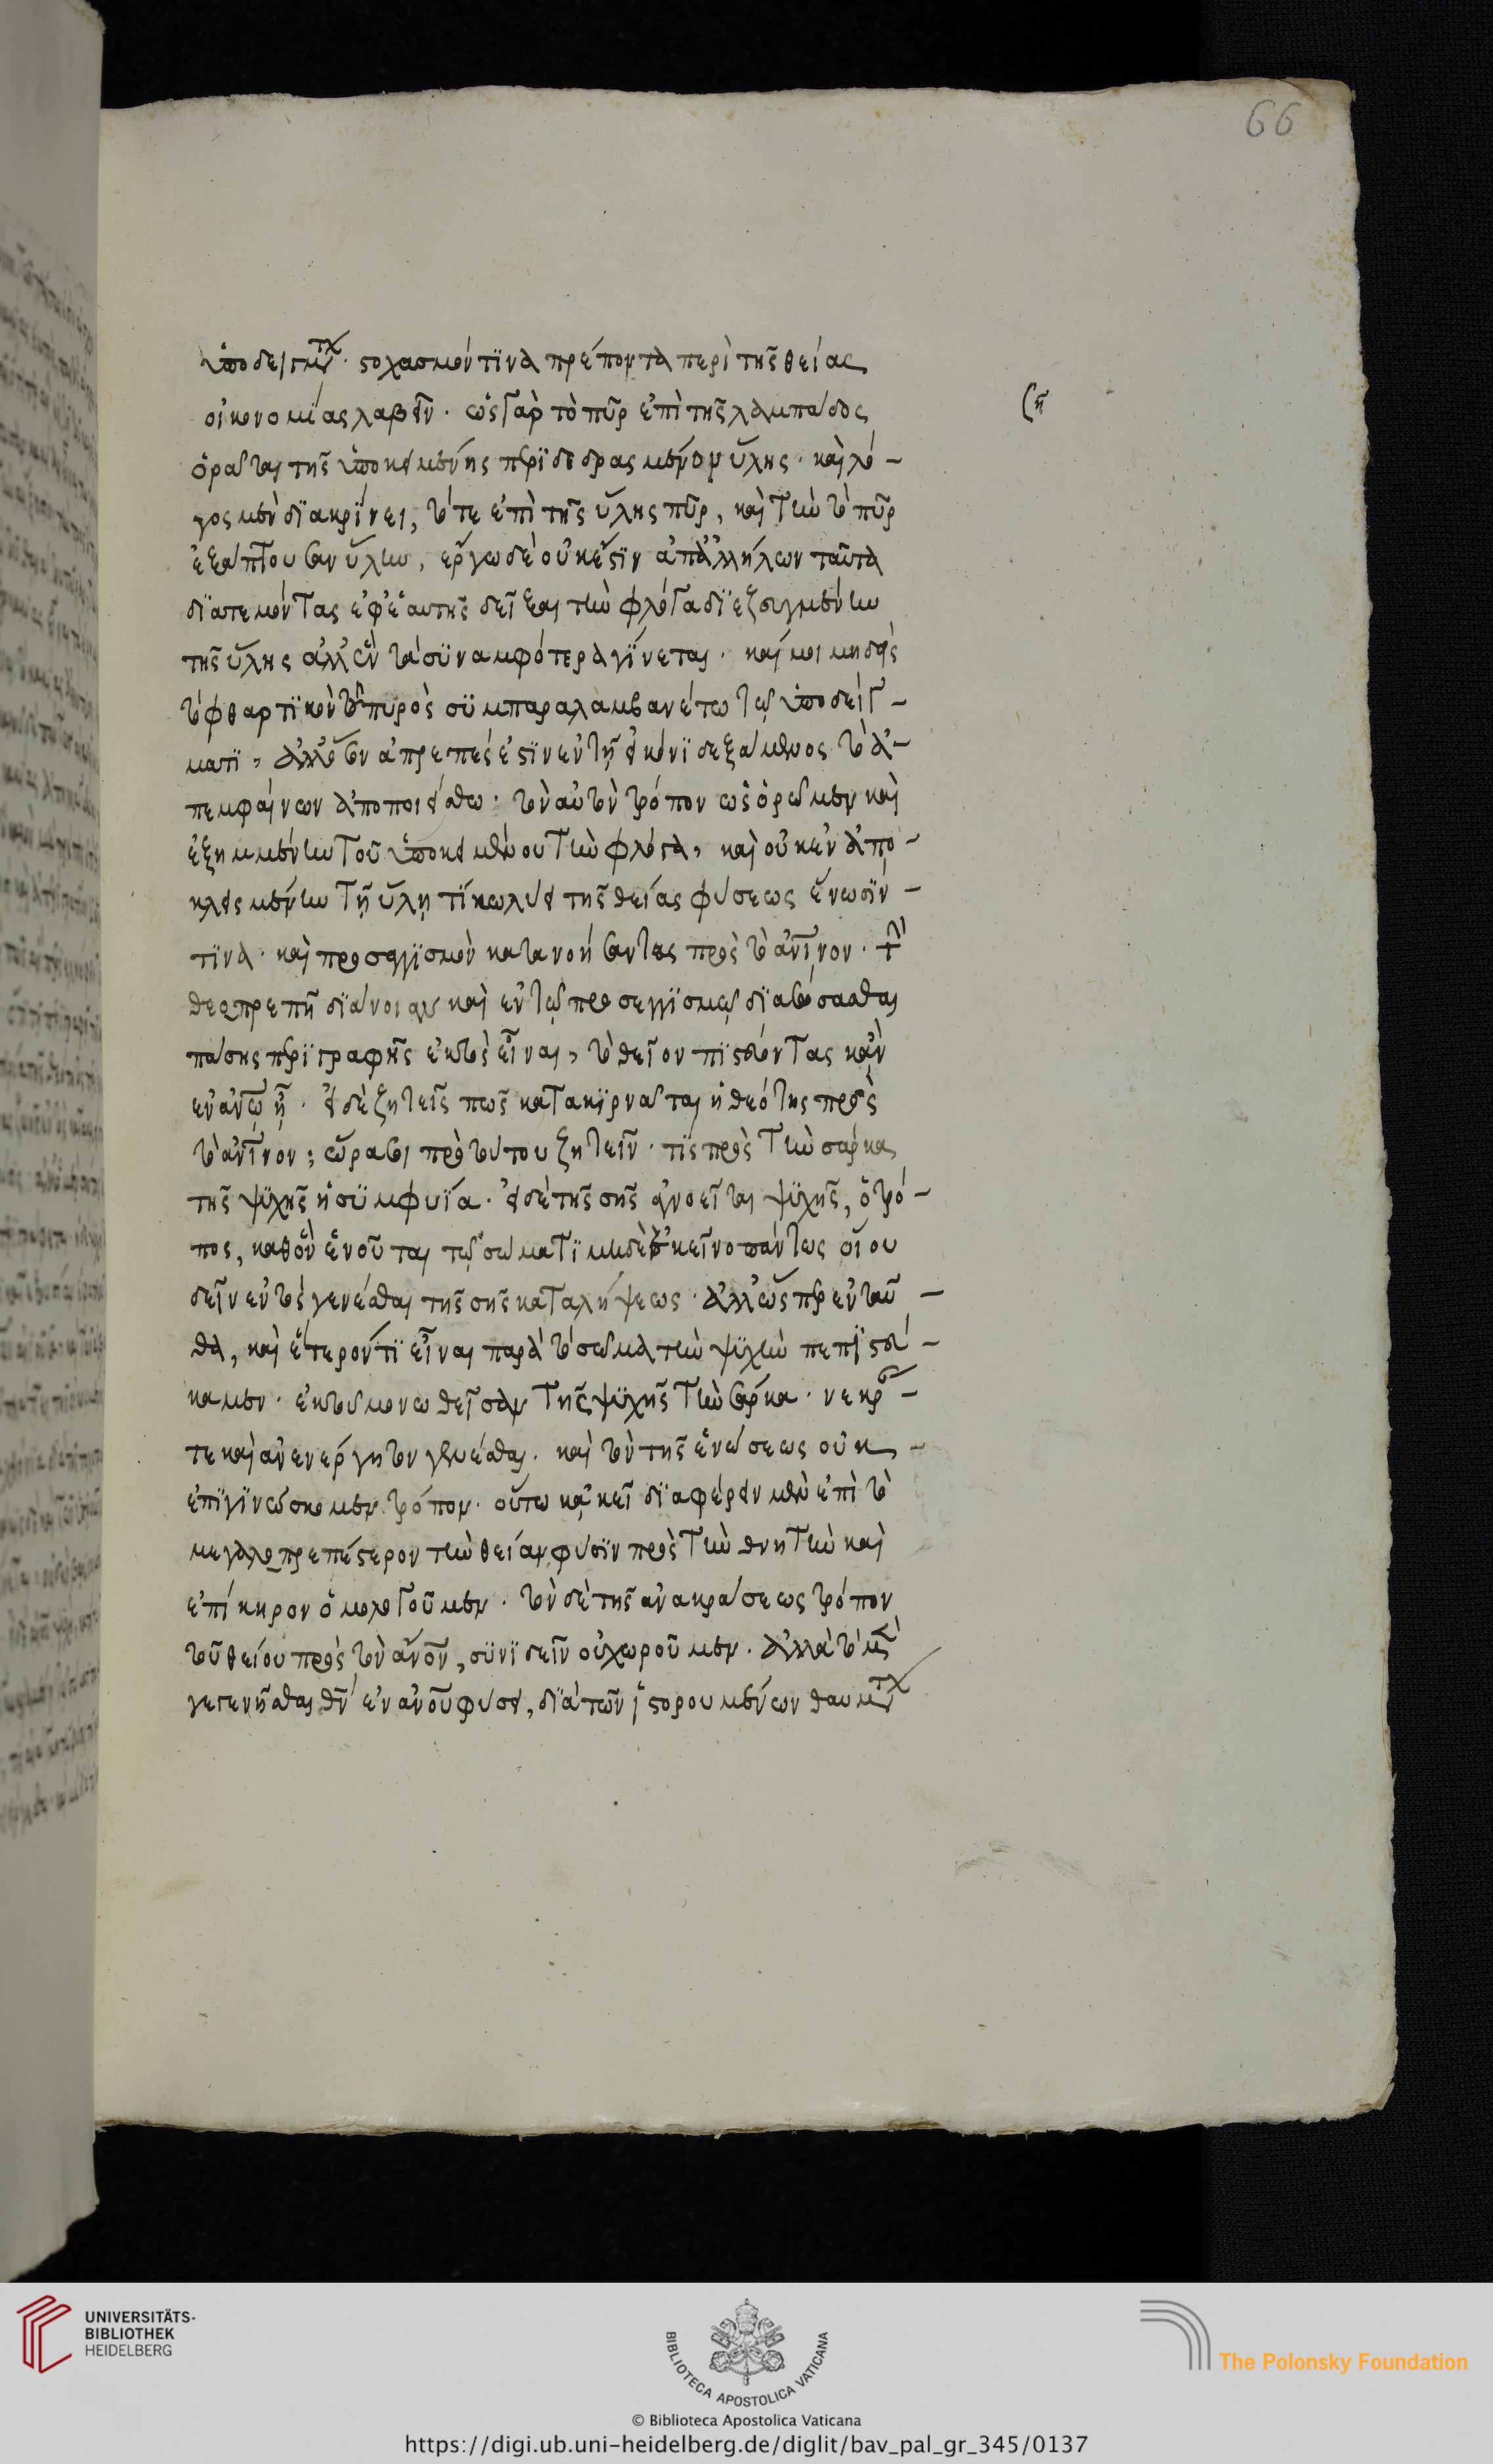 66
ὑποδείγματος. στοχασμόν τϊνα πρέποντα περὶ τῆς θείας
οἰκονομίας λαβεῖν. ὡς γὰρ τὸ πῦρ ἐπὶ τῆς λαμπάδος
ὁρᾶται τῆς ὑποκειμένης περϊδεδραγμένον ὕλης. καὶ λό-
γος μὲν δϊακρίνει, τό τε ἐπὶ τῆς ὕλης πῦρ, καὶ τὴν τὸ πῦρ
ἐξάπτουσαν ὕλην, ἔργω δὲ οὐκ ἔστϊν ἀπ' ἀλλήλων ταῦτα
δϊατεμόντας ἐφ' ἑαυτῆς δεῖξαι τὴν φλόγα δϊεζευγμένην
τῆς ὕλης ἀλλ' ἓν τὰ σϋναμφότερα γίνεται. καί μοι μηδεὶς
τὸ φθαρτϊκὸν τοῦ πυρὸς σϋμπαραλαμβανέτω τῷ ὑποδείγ-
ματϊ, ἀλλ' ὅσον ἀπρεπές ἐστϊν ἐν τῇ εἰκόνϊ δεξάμενος τὸ ἀ-
πεμφαίνων ἀποποιείσθω. τὸν αὐτὸν τρόπον ὡς ὁρῶμεν καὶ
ἐξημμένην τοῦ ὑποκειμένου τὴν φλόγα, καὶ οὐκ ἐν ἀπο-
κλειομένην τῇ ὕλῃ τί κωλύει τῆς θείας φύσεως ἕνωσϊν
τϊνα. καὶ προσεγγϊσμὸν κατανοήσαντας πρὸς τὸ ἀνϊνον. τὴν
θεοπρεπῆ δϊάνοιαν καὶ ἐν τῷ προσεγγϊσμῷ δϊασώσασθαι
πάσης περϊγραφῆς ἐκτὸς εἶναι, τὸ θεῖον πϊστεύοντας κἂν
ἐν ἀνω ᾖ. εἰ δὲ ζητεῖς πῶς κατακϊρνᾶται ἡ θεότης πρὸς
τὸ ἀνϊνον; ὥρα σοι πρὸ τούτου ζητεῖν. τίς πρὸς τὴν σάρκα
τῆς ψϋχῆς ἡ σϋμφυϊα. εἰ δὲ τῆς σῆς ἀγνοεῖται ψϋχῆς, ὁ τρό-
πος, καθ' ὃν ἑνοῦται τῷ σώματϊ μηδὲ ἐκεῖνο πάντως οἴου
δεῖν ἐντὸς γενέσθαι τῆς σῆς καταλήψεως. ἀλλ' ὥσπερ ἐνταῦ-
θα, καὶ ἕτερόν τϊ εἶναι παρὰ τὸ σῶμα τὴν ψϋχὴν πεπϊστεύ-
καμεν. ἐκ τοῦ μονωθεῖσαν τῆς ψϋχῆς τὴν σάρκα. νεκράν
τε καὶ ἀνενέργητον γενέσθαι. καὶ τὸν τῆς ἑνώσεως οὐκ
ἐπϊγϊνώσκομεν τρόπον. οὕτω κἀκεῖ δϊαφέρειν μὲν ἐπὶ τὸ
μεγαλοπρεπέστερον τὴν θείαν φύσϊν πρὸς τὴν θνητὴν καὶ
ἐπίκηρον ὁμολογοῦμεν. τὸν δὲ τῆς ἀνακράσεως τρόπον
τοῦ θείου πρὸς τὸν ἄνον, σϋνϊδεῖν οὐ χωροῦμεν. ἀλλὰ τὸ μὲν
γεγενῆσθαι θν ἐν ἀνου φύσει, δϊὰ τῶν ἱστορουμένων θαυμάτων
UNIVERSITÄTS-
BIBLIOTHEK
HEIDELBERG
BIBLIOTECA APOSTOLICA VATICANA
The Polonsky Foundation
© Biblioteca Apostolica Vaticana
https://digi.ub.uni-heidelberg.de/diglit/bav_pal_gr_345/0137